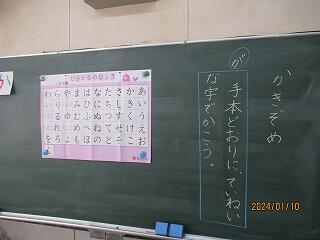 かきぞめ
が
手本どおりに、ていねい
な字でかこう。
ひらがなのひょう
あいうえお
かきくけこ
さしすせそ
たちつてと
なにぬねの
はひふへほ
まみむめも
やいゆえよ
らりるれろ
わいうえを
2024/01/10